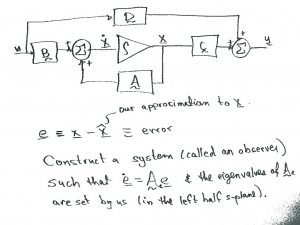 D
u B Σ ẋ ∫ x C Σ y
A
our approximation to x.
e ≡ x - x̂ ≡ error
Construct a system (called an observer)
such that ė = Aₑe & the eigenvalues of Aₑ
are set by us (in the left half s-plane).